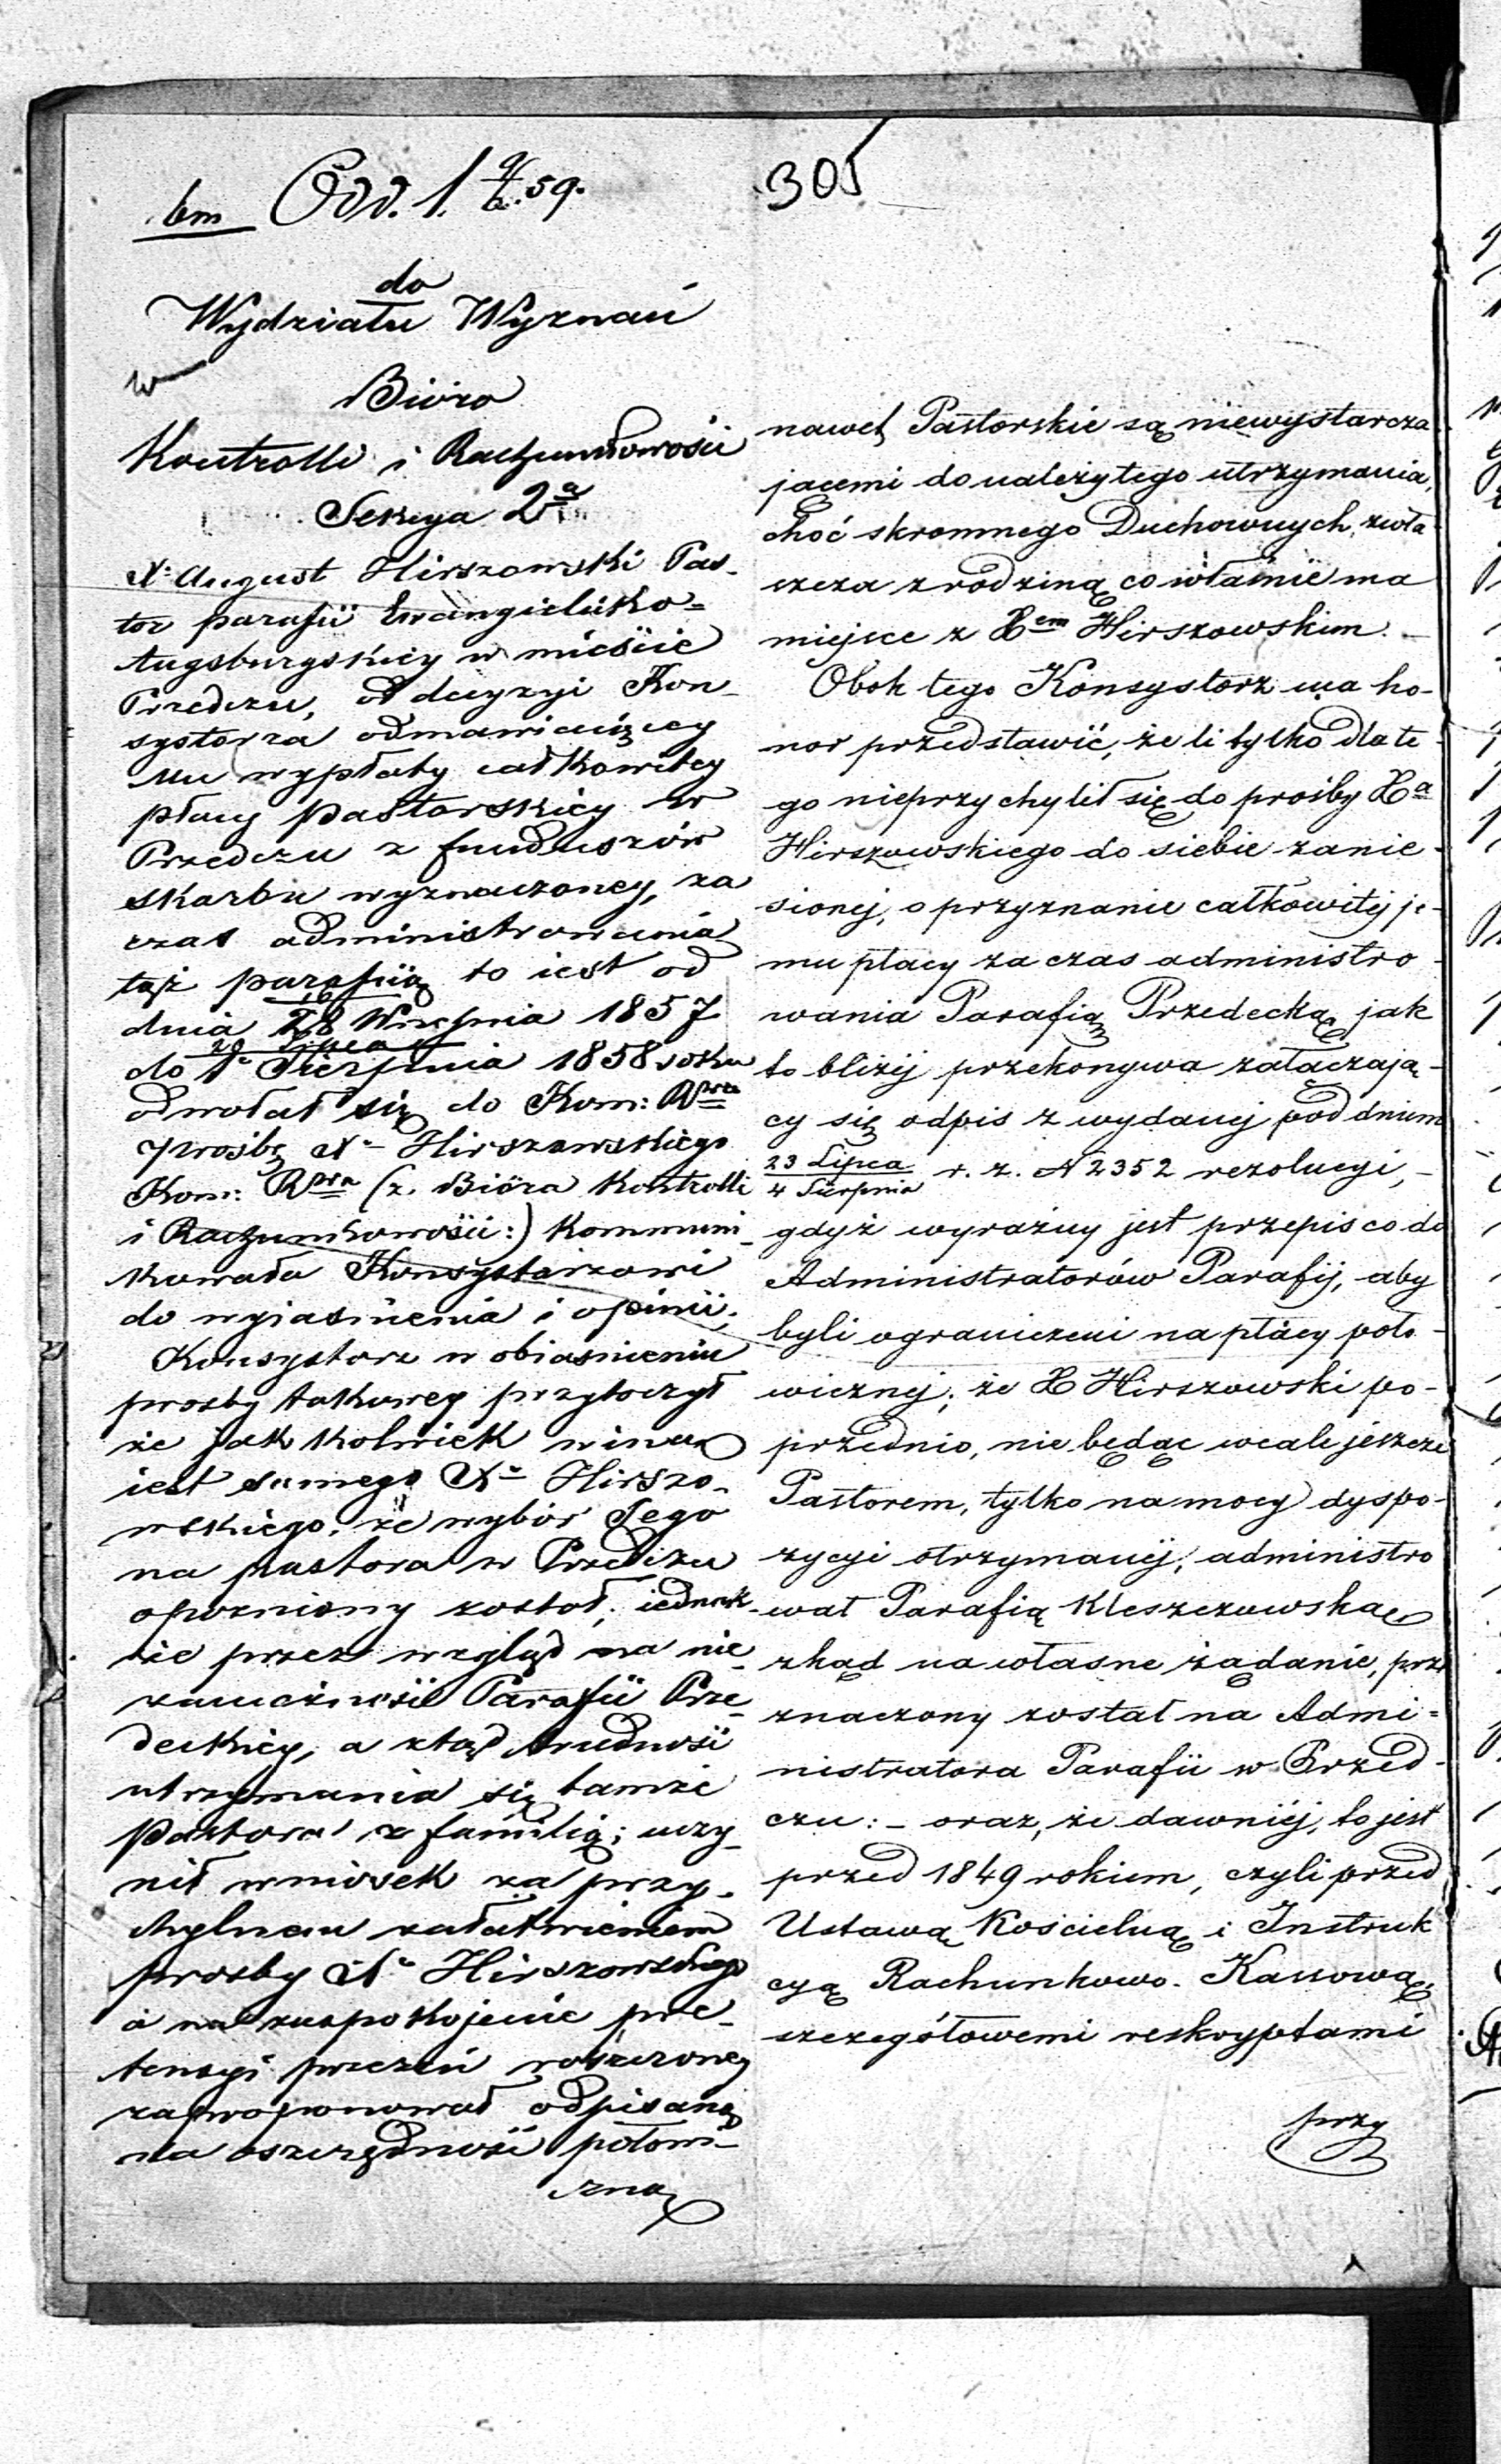 6m Odd. 1. 59.
305
do
Wydziału Wyznań
w
Bióro
Kontrolli i Rachunkowości
Sekcya 2a
X. August Hirszowski Pas-
tor parafii Ewangielicko=
Augsburgskiey w mieście
Przedczu, od decyzyi Kon-
systorza odmawiaiącey
mu wypłaty całkowitey
płacy pastorskiey w
Przedczu z funduszów
skarbu wyznaczoney, za
czas administrowania
tąż parafią to iest od
dnia 16/28 Września 1857
do 20 Lipca/1 Sierpnia 1858 roku
odwołał się do Kom: Rzą
Prośbę Xa Hirszowskiego
Kom: Rząa (z. Bióra Kontrolli
i Rachunkowości:) kommuni-
kowała Konsystorzowi
do wyiaśnienia i opinii.
Konsystorz w obiaśnieniu
prośby takowey przytoczył
że jakkolwiek winą
iest samego Xa Hirszo-
wskiego, że wybór Jego
na pastora w Przedczu
opozniony został, iednak-
że przez wzgląd na nie-
zamożność Parafii Prze-
deckiey, a ztąd trudność
utrzymania się tamże
Pastora z familią; uczy-
nił wniosek za przy-
chylnem załatwieniem
prosby Xa Hirszowskiego
a na zaspokojenie pre-
tensyi przezeń roszczoney
zaproponował odpisaną
na oszczędność połowi-
czną
nawet Pastorskie są niewystarcza
jącemi do należytego utrzymania,
choć skromnego Duchownych, zwła-
szcza z rodziną, co właśnie ma
miejsce z Xem Hirszowskim. -
Obok tego Konsystorz ma ho-
nor przedstawić, że li tylko dla te-
go nieprzychylił się do prośby Xa
Hirszowskiego do siebie zanie-
sionej, o przyznanie całkowitej je-
mu płacy za czas administro-
wania Parafią Przedecką, jak
to bliżej przekonywa załączają-
cy się odpis z wydanej pod dniem
23 Lipca/4 Sierpnia r. z. N 2352 rezolucyi, -
gdyż wyraźny jest przepis co do
Administratorów Parafij, aby
byli ograniczeni na płacy poło-
wicznej; że X Hirszowski po-
przednio, nie będąc wcale jeszcze
Pastorem, tylko na mocy dyspo-
zycyi otrzymanej, administro
wał Parafią Kleszczowską
zkąd na własne żądanie, prze
znaczony został na Admi=
nistratora Parafii w Przed-
czu: - oraz, że dawniej, to jest
przed 1849 rokiem, czyli przed
Ustawą Kościelną i Instruk
cyą Rachunkowo-Kassową,
szczegółowemi reskryptami
przy